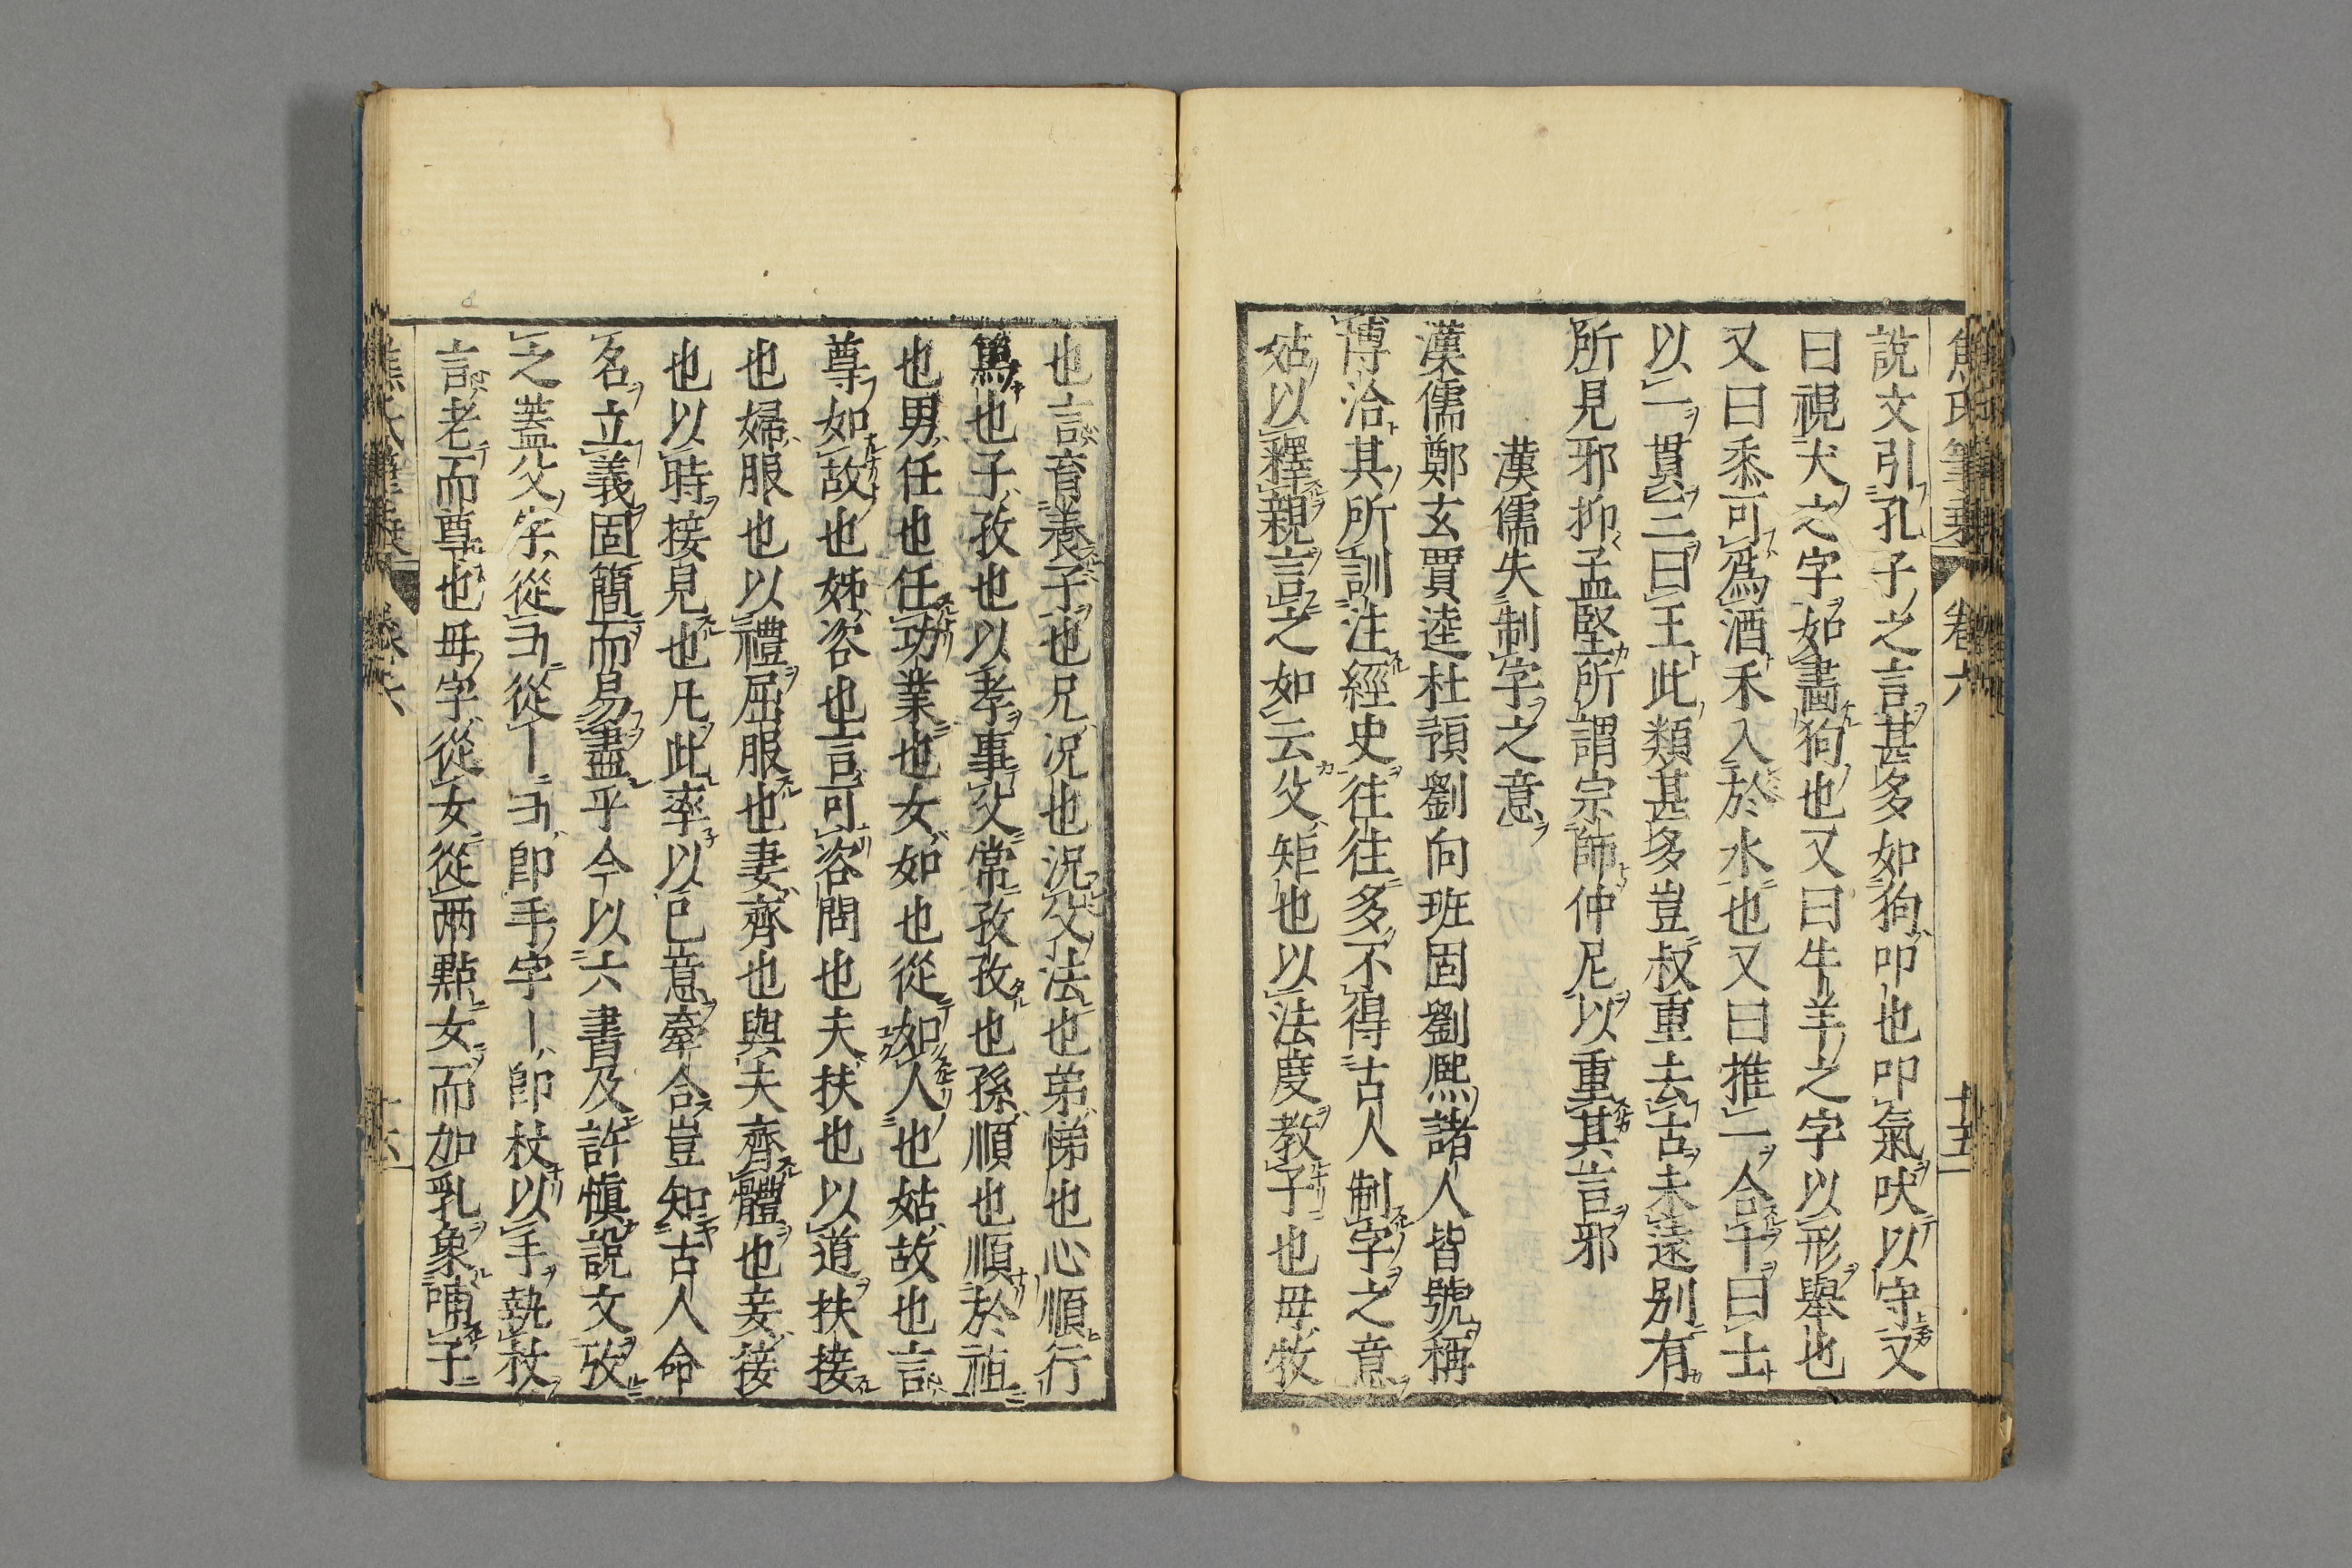 焦氏筆乗 卷六 十五
說文引孔子之言甚多如狗叩也叩氣吠以守又
曰視犬之字如畫狗也又曰牛羊之字以形舉也
又曰黍可爲酒禾入於水也又曰推一合十曰士
以一貫三曰王此類甚多豈叔重去古未遠別有
所見邪抑孟堅所謂宗師仲尼以重其言邪
漢儒失制字之意
漢儒鄭玄賈逵杜預劉向班固劉熙諸人皆號稱
博洽其所訓注經史往往多不得古人制字之意
姑以釋親言之如云父矩也以法度教子也毋牧
也言育養子也兄况也况父法也弟悌也心順行
篤也子孜也以孝事父常孜孜也孫順也順於祖
也男任也任功業也女如也從如人也姑故也言
尊如故也姊咨也言可咨問也夫扶也以道扶接
也婦服也以禮屈服也妻齊也與夫齊體也妾接
也以時接見也凡此率以巳意牽合豈知古人命
名立義固簡而易盡乎今以六書及許慎說文攷
之蓋父字從㕚從丨㕚即手字丨即杖以手執杖
言老而尊也毋字從女從兩點女而加乳象哺子
焦氏筆乗 卷六 十六